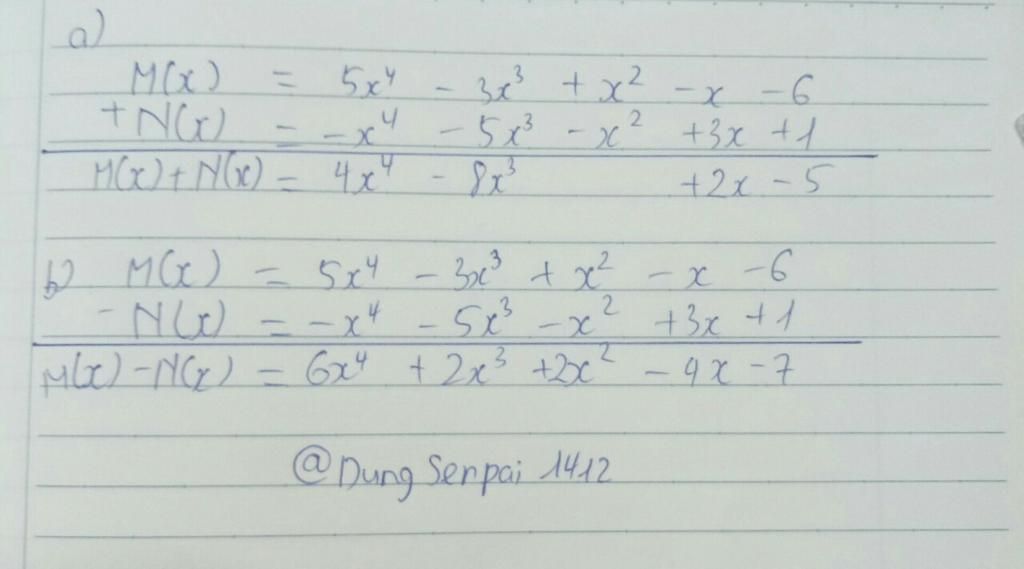 a)
M(x) = 5x⁴ - 3x³ + x² - x - 6
+ N(x) = -x⁴ - 5x³ - x² + 3x + 1
M(x) + N(x) = 4x⁴ - 8x³ + 2x - 5
b) M(x) = 5x⁴ - 3x³ + x² - x - 6
- N(x) = -x⁴ - 5x³ - x² + 3x + 1
M(x) - N(x) = 6x⁴ + 2x³ + 2x² - 4x - 7
@Dung Senpai 1412